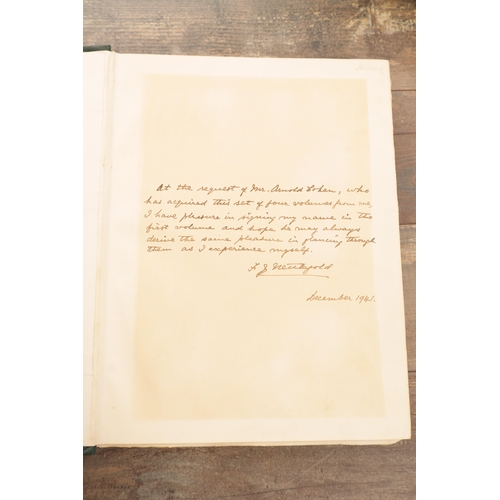 At the request of Mr. Arnold , who
has acquired this set of four volumes from me,
I have pleasure in signing my name in the
first volume and hope he may always
derive the same pleasure in glancing through
them as I experience myself.
December 1941.